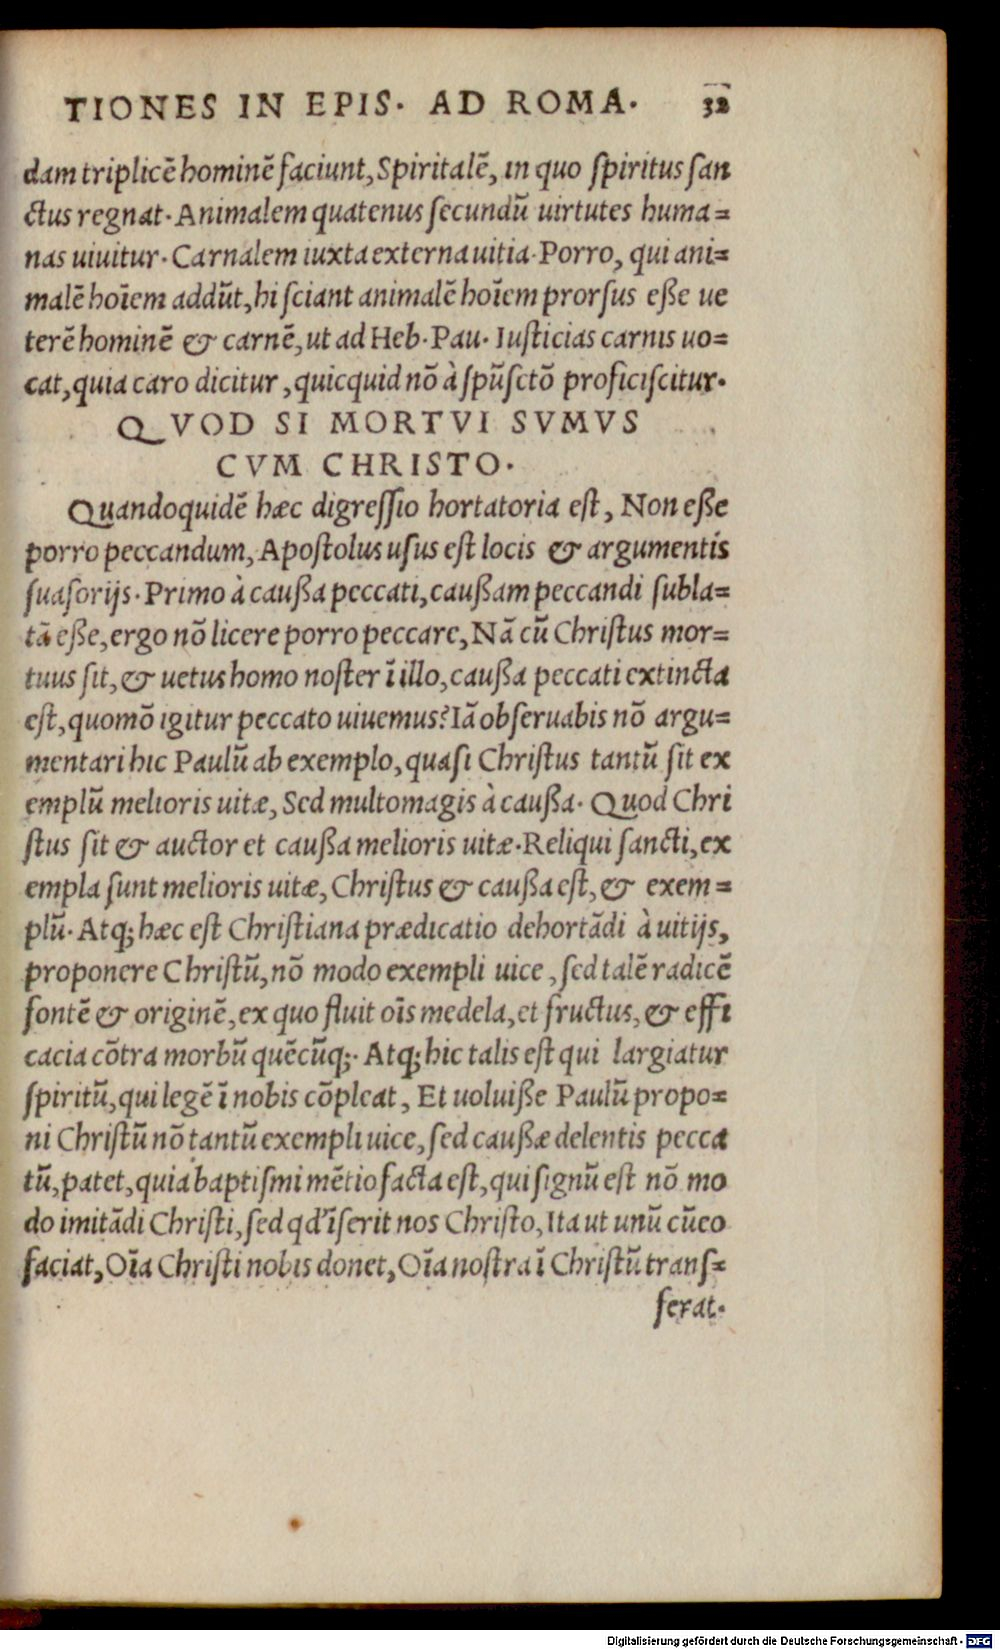 TIONES IN EPIS. AD ROMA. 32
dam triplicē hominē faciunt, Spiritalē, in quo spiritus san
ctus regnat. Animalem quatenus secundū uirtutes huma=
nas uiuitur. Carnalem iuxta externa uitia. Porro, qui ani=
malē hoīem addūt, hi sciant animalē hoīem prorsus eße ue
terē hominē & carnē, ut ad Heb. Pau. Iusticias carnis uo=
cat, quia caro dicitur, quicquid nō à spūsctō proficiscitur.
QVOD SI MORTVI SVMVS
CVM CHRISTO.
Quandoquidē hæc digressio hortatoria est, Non eße
porro peccandum, Apostolus usus est locis & argumentis
suasorijs. Primo à caußa peccati, caußam peccandi subla=
tā eße, ergo nō licere porro peccare, Nā cū Christus mor=
tuus sit, & uetus homo noster ī illo, caußa peccati extincta
est, quomō igitur peccato uiuemus? Iā obseruabis nō argu=
mentari hic Paulū ab exemplo, quasi Christus tantū sit ex
emplū melioris uitæ, Sed multomagis à caußa. Quod Chri
stus sit & auctor et caußa melioris uitæ. Reliqui sancti, ex
empla sunt melioris uitæ, Christus & caußa est, & exem=
plū. Atq; hæc est Christiana prædicatio dehortādi à uitijs,
proponere Christū, nō modo exempli uice, sed talē radicē
fontē & originē, ex quo fluit oīs medela, et fructus, & effi
cacia cōtra morbū quēcūq;. Atq; hic talis est qui largiatur
spiritū, qui legē ī nobis cōpleat, Et uoluiße Paulū propo=
ni Christū nō tantū exempli uice, sed caußæ delentis pecca
tū, patet, quia baptismi mētio facta est, qui signū est nō mo
do imitādi Christi, sed qd' īserit nos Christo, Ita ut unū cū eo
faciat, Oīa Christi nobis donet, Oīa nostra ī Christū trans=
ferat.
Digitalisierung gefördert durch die Deutsche Forschungsgemeinschaft - DFG